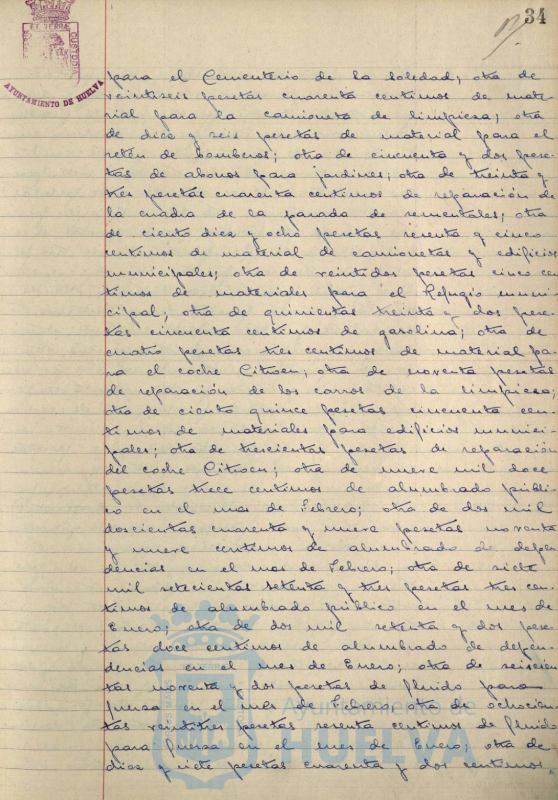 34
AYUNTAMIENTO DE HUELVA
para el Cementerio de la Soledad; otra de
veintiseis pesetas cuarenta centimos de mate-
rial para la camioneta de limpieza; otra
de diez y seis pesetas de material para el
retén de bomberos; otra de cincuenta y dos pese-
tas de abonos para jardines; otra de treinta y
tres pesetas cuarenta centimos de reparación de
la cuadra de la parada de sementales; otra
de ciento diez y ocho pesetas setenta y cinco
centimos de material de camionetas y edificios
municipales; otra de veintidos pesetas cinco cen-
timos de materiales para el Refugio muni-
cipal; otra de quinientas treinta y dos pese-
tas cincuenta centimos de gasolina; otra de
cuatro pesetas tres centimos de material pa-
ra el coche Citroen; otra de noventa pesetas
de reparación de los carros de la limpieza;
otra de ciento quince pesetas cincuenta cen-
timos de materiales para edificios munici-
pales; otra de trescientas pesetas de reparación
del coche Citroen; otra de nueve mil doce
pesetas trece centimos de alumbrado públi-
co en el mes de Febrero; otra de dos mil
doscientas cuarenta y nueve pesetas noventa
y nueve centimos de alumbrado de depen-
dencias en el mes de Febrero; otra de siete
mil setecientas setenta y tres pesetas tres cen-
timos de alumbrado público en el mes de
Enero; otra de dos mil setenta y dos pese-
tas doce centimos de alumbrado de depen-
dencias en el mes de Enero; otra de seiscien-
tas noventa y dos pesetas de fluido para
fuerza en el mes de Febrero otra de ochocien-
tas veintitres pesetas sesenta centimos de fluido
para fuerza en el mes de Enero; otra de
diez y siete pesetas cuarenta y dos centimos,
Ayuntamiento de
HUELVA